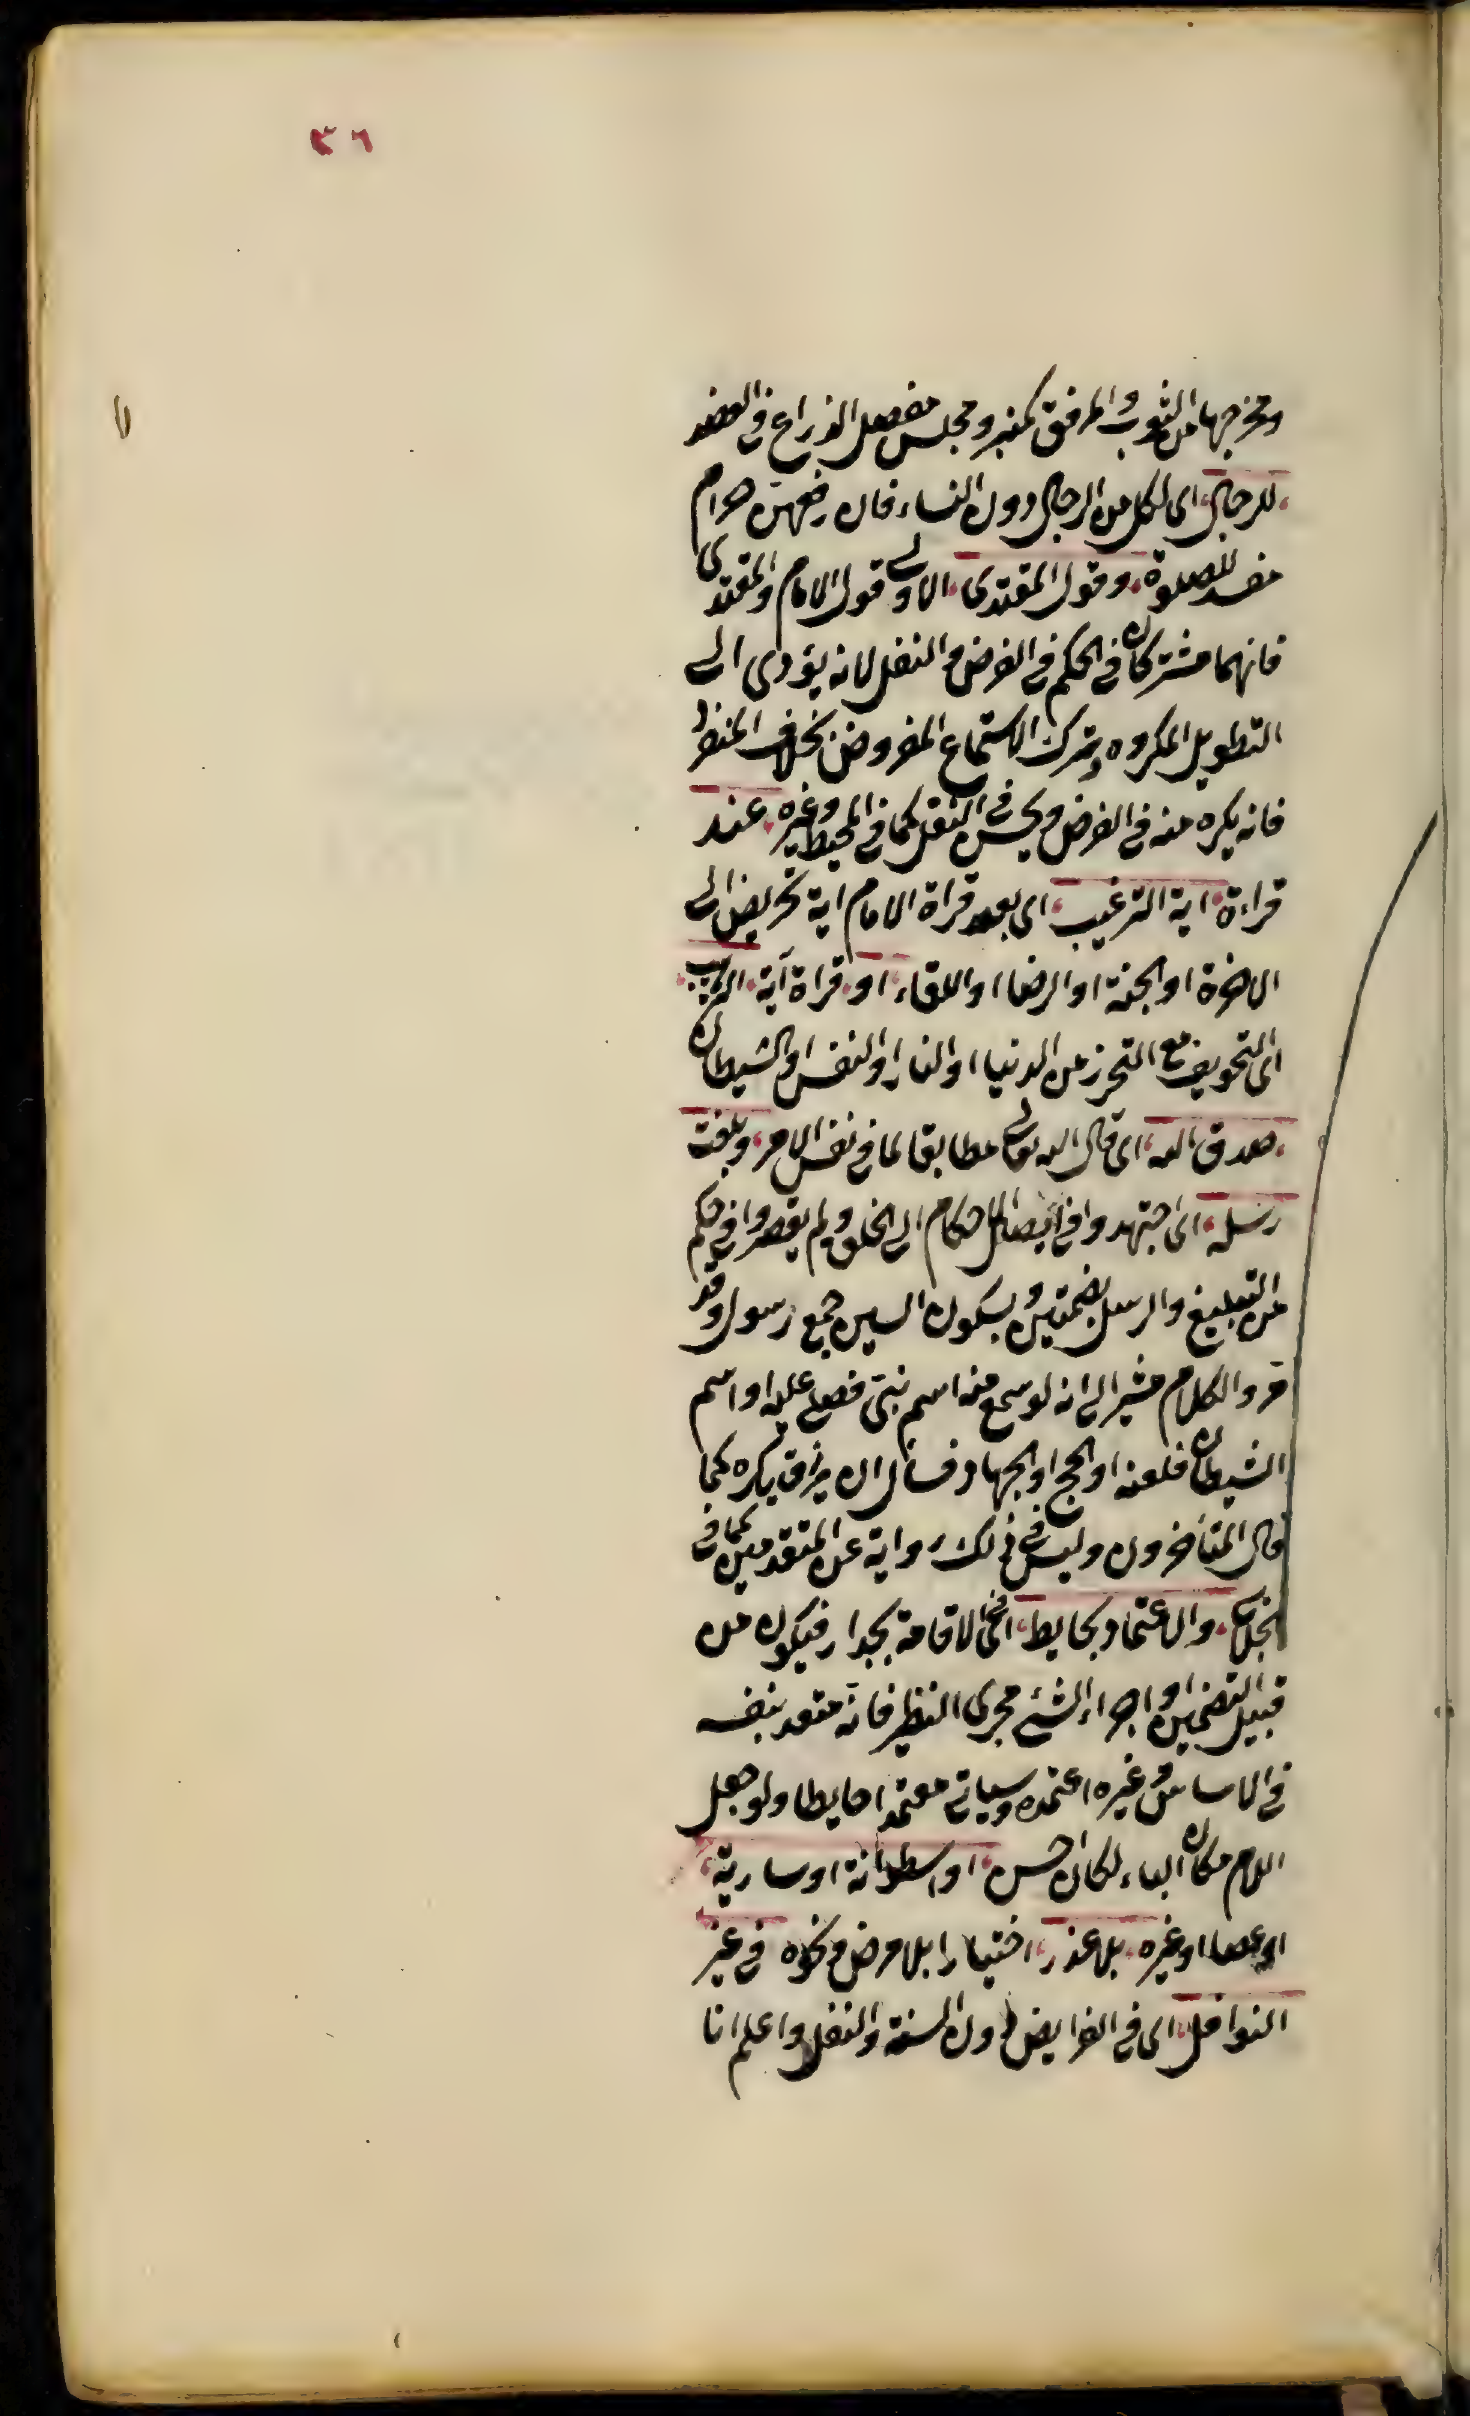 ٣٦
ومخرجها من الثوب والمرفق كمنبر ومجلس مفصل الذراع في العضد
للرجال اى لكل من الرجال دون النساء فان رفعهن حرام
مفسد للصلوة وقول المقتدى الاولى قول الامام والمقتدى
فانهما مشتركان في الحكم في الفرض والنفل لانه يؤدى الى
التطويل المكروه وترك الاستماع المفروض بخلاف المنفرد
فانه يكره منه في الفرض ويحسن في النفل كما في المحيط وغيره عند
قراءة اية الترغيب اى بعد قراة الامام اية تحريض الى
الاخرة او الجنة او الرضا او اللقاء او قراة آية الترهيب
اى التخويف مع التحرز من الدنيا او النار او النفس او الشيطان
صدق الله اى قال الله تعالى مطابقا لما في نفس الامر وبلغت
رسله اى اجتهدوا في ايصال الاحكام الى الخلق ولم يقصروا في حكم
من التبليغ والرسل بضمتين وبسكون السين جمع رسول وقد
مر والكلام مشير الى انه لو سمع منه اسم نبي فصلى عليه او اسم
الشيطان فلعنه او الحج او الجهاد فسأل ان يرزق يكره كما
قال المتأخرون وليس في ذلك رواية عن المتقدمين كما في
الجلابى والاعتماد بحايط اى الاقامة بجدار فيكون من
قبيل التضمين او اجراء الشئ مجرى النظير فانه متعد بنفسه
في الاساس وغيره اعتمده وسياتى معتمدا حايطا ولو جعل
اللام مكان الباء لكان احسن او اسطوانة او سارية
او عصا او غيره بلا عذر اختيارا بلا مرض ونحوه في غير
النوافل اى في الفرايض دون السنة والنفل واعلم انا